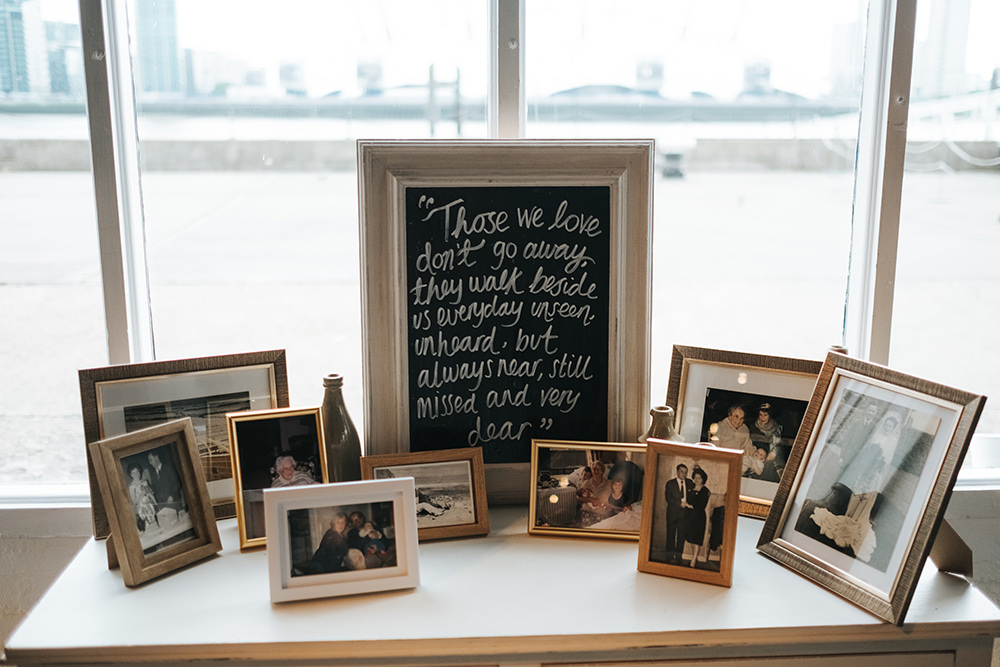 “Those we love
don't go away,
they walk beside
us everyday unseen,
unheard, but
always near, still
missed and very
dear”